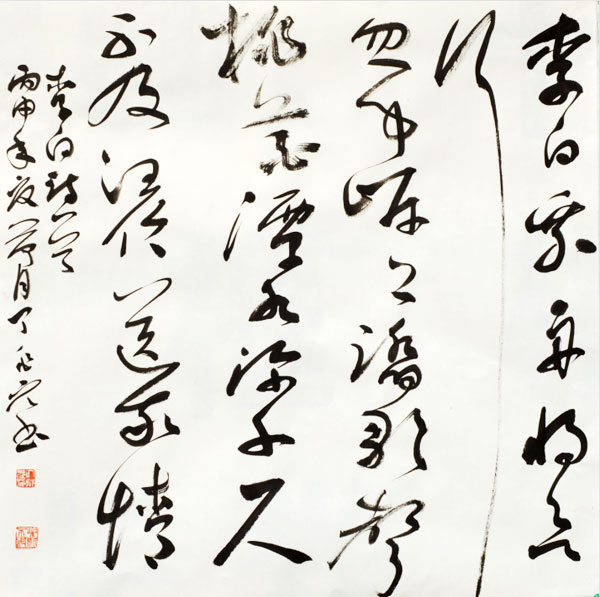 李白乘舟将欲
行
忽闻岸上踏歌声
桃花潭水深千尺
不及汪伦送我情
李白诗一首
丙申年夏荷月丁书